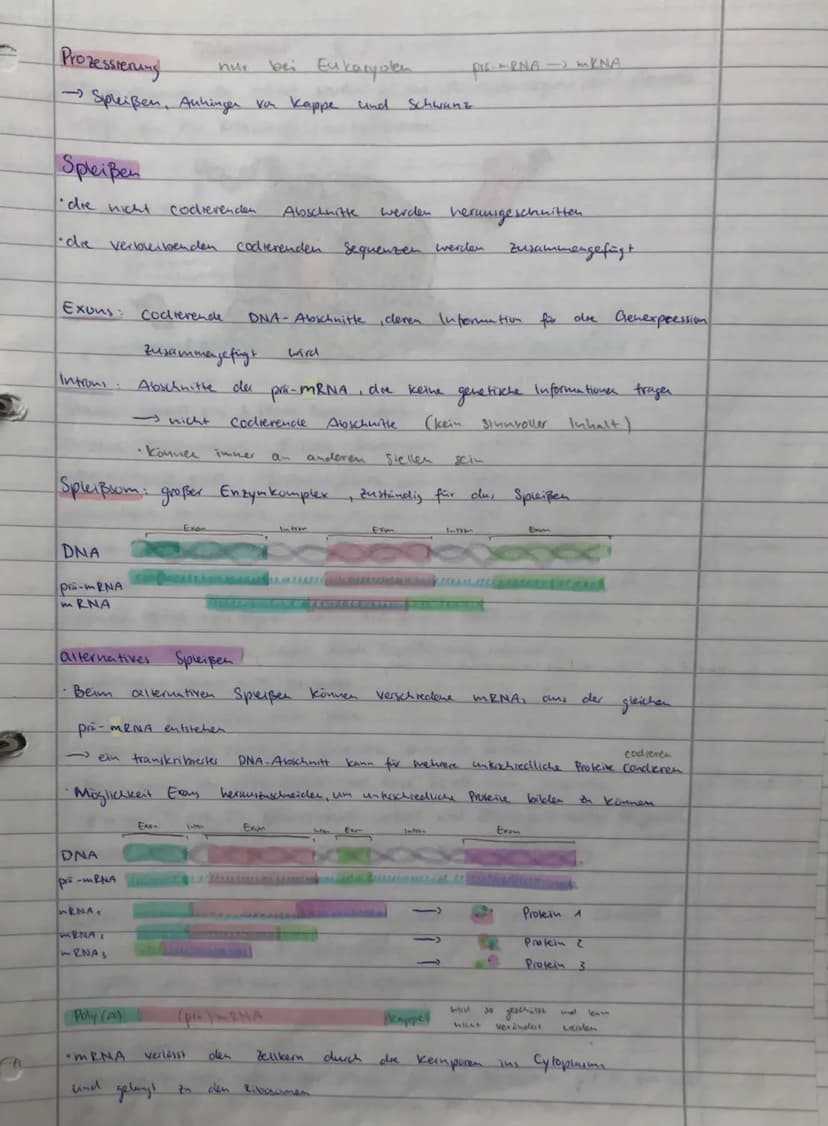 Prozessierung nur bei Eukaryoten prä-mRNA → mRNA
→ Spleißen, Anhängen von Kappe und Schwanz
Spleißen
• die nicht codierenden Abschnitte werden herausgeschnitten
• die verbleibenden codierenden Sequenzen werden zusammengefügt
Exons: codierende DNA-Abschnitte, deren Information für die Genexpression
zusammengefügt wird
Introns: Abschnitte der prä-mRNA, die keine genetische Informationen tragen
→ nicht codierende Abschnitte (kein sinnvoller Inhalt)
• können immer an anderen Stellen sein
Spleißsom: großer Enzymkomplex, zuständig für das Spleißen
Exon Intron Exon Intron Exon
DNA
prä-mRNA
mRNA
alternatives Spleißen
• Beim alternativen Spleißen können verschiedene mRNAs aus der gleichen
prä-mRNA entstehen
codieren
→ ein transkribierter DNA-Abschnitt kann für mehrere unterschiedliche Proteine condieren
• Möglichkeit Exons herauszuschneiden, um unterschiedliche Proteine bilden zu können
Exon Intr Exon Intr Exon Intron Exon
DNA
prä-mRNA
mRNA₁ → Protein 1
mRNA₂ → Protein 2
mRNA₃ → Protein 3
Poly(A) (prä) mRNA Kappe wird so geschützt und kann
nicht verändert werden
• mRNA verlässt den Zellkern durch die Kernporen ins Cytoplasma
und gelangt zu den Ribosomen